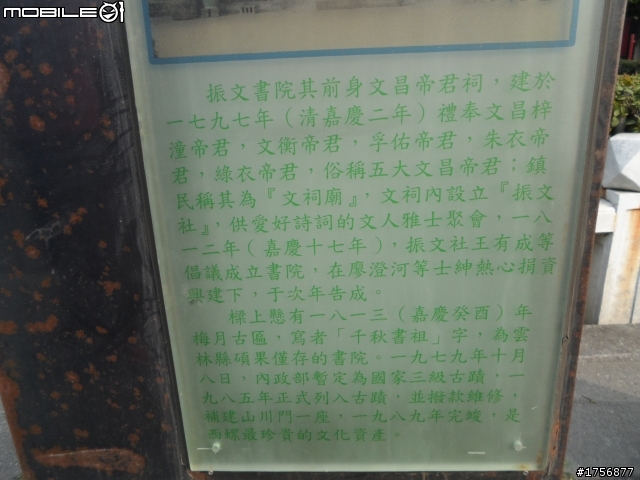 MOBILE01
振文書院其前身文昌帝君祠，建於
一七九七年（清嘉慶二年）禮奉文昌梓
潼帝君，文衡帝君，孚佑帝君，朱衣帝
君，綠衣帝君，俗稱五大文昌帝君；鎮
民稱其為『文祠廟』，文祠內設立『振文
社』，供愛好詩詞的文人雅士聚會，一八
一二年（嘉慶十七年），振文社王有成等
倡議成立書院，在廖澄河等士紳熱心捐資
興建下，于次年告成。
樑上懸有一八一三（嘉慶癸酉）年
梅月古匾，寫者「千秋書祖」字，為雲
林縣碩果僅存的書院。一九七九年十月
八日，內政部暫定為國家三級古蹟，一
九八五年正式列入古蹟，並撥款維修，
補建山川門一座，一九八九年完峻，是
西螺最珍貴的文化資產。
#1756877